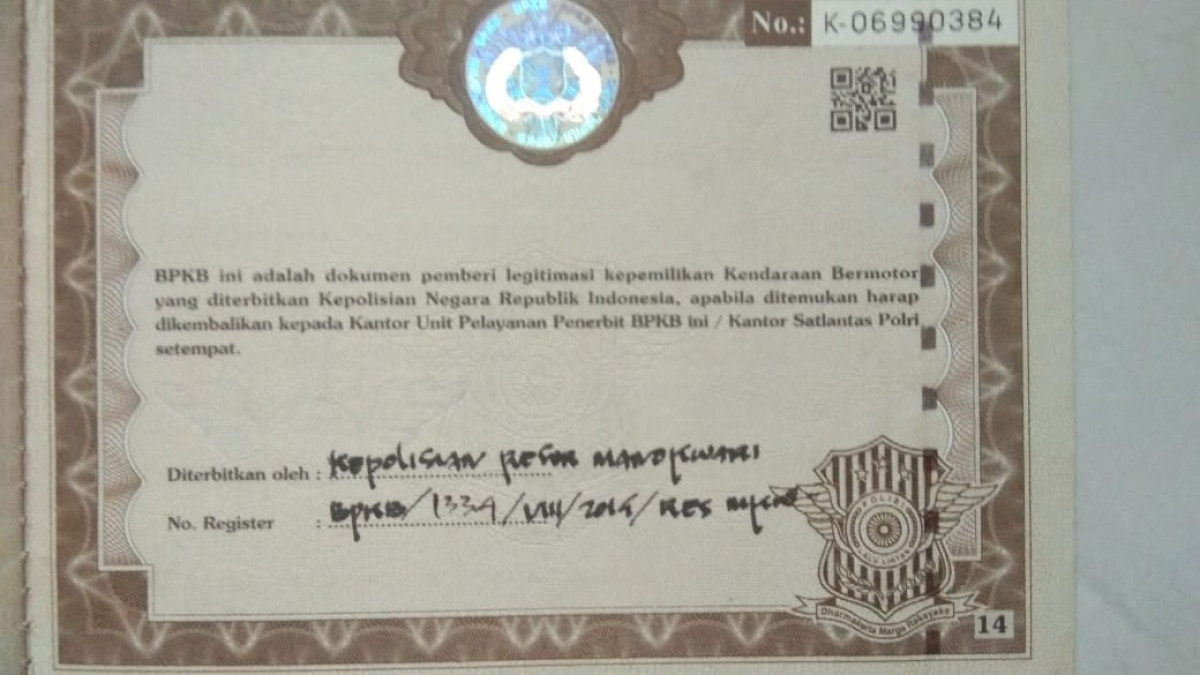 No.: K-06990384
BPKB ini adalah dokumen pemberi legitimasi kepemilikan Kendaraan Bermotor
yang diterbitkan Kepolisian Negara Republik Indonesia, apabila ditemukan harap
dikembalikan kepada Kantor Unit Pelayanan Penerbit BPKB ini / Kantor Satlantas Polri
setempat.
Diterbitkan oleh : KEPOLISIAN RESOR MANOKWARI
No. Register : BPKB/1334/VIII/2014/RES
POLISI
LALU LINTAS
Dharmakerta Marga Raksyaka
14